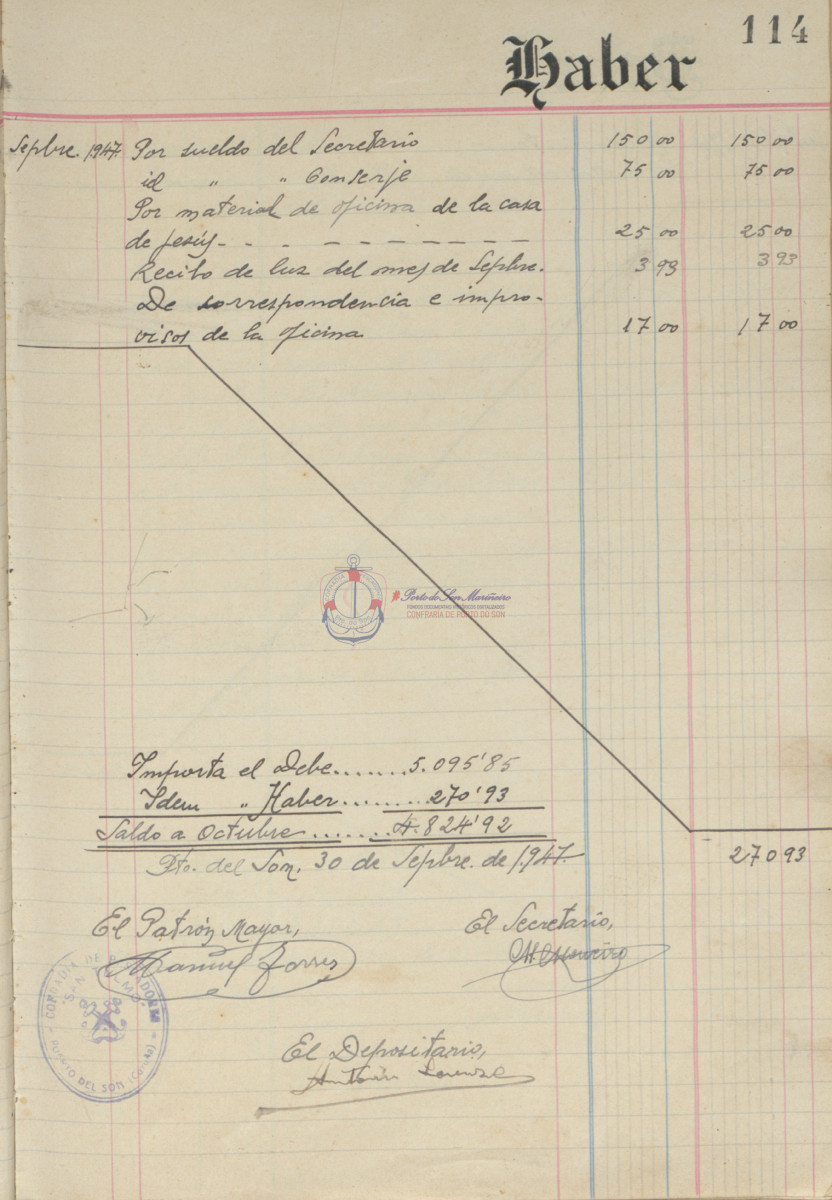 114
Haber
Sepbre. 1.947. Por sueldo del Secretario 150 00 150 00
id " " Conserje 75 00 75 00
Por material de oficina de la casa
de pesúy - - - - - - - - - - 25 00 25 00
Recibo de luz del mes de Sepbre. 3 93 3 93
De correspondencia e impro-
visos de la oficina 17 00 17 00
#Porto do Son Mariñeiro
FONDOS DOCUMENTAIS HISTÓRICOS DIXITALIZADOS
CONFRARÍA DE PORTO DO SON
Importa el Debe....... 5.095'85
Idem " Haber......... 270'93
Saldo a Octubre ......... 4.824'92
270 93
Pto. del Son, 30 de Sepbre. de 1.947.
El Patrón Mayor, El Secretario,
Manuel Torres
COFRADIA DE PESCADORES
"SAN TELMO"
PUERTO DEL SON (Coruña)
El Depositario,
Antonio Lorenzo